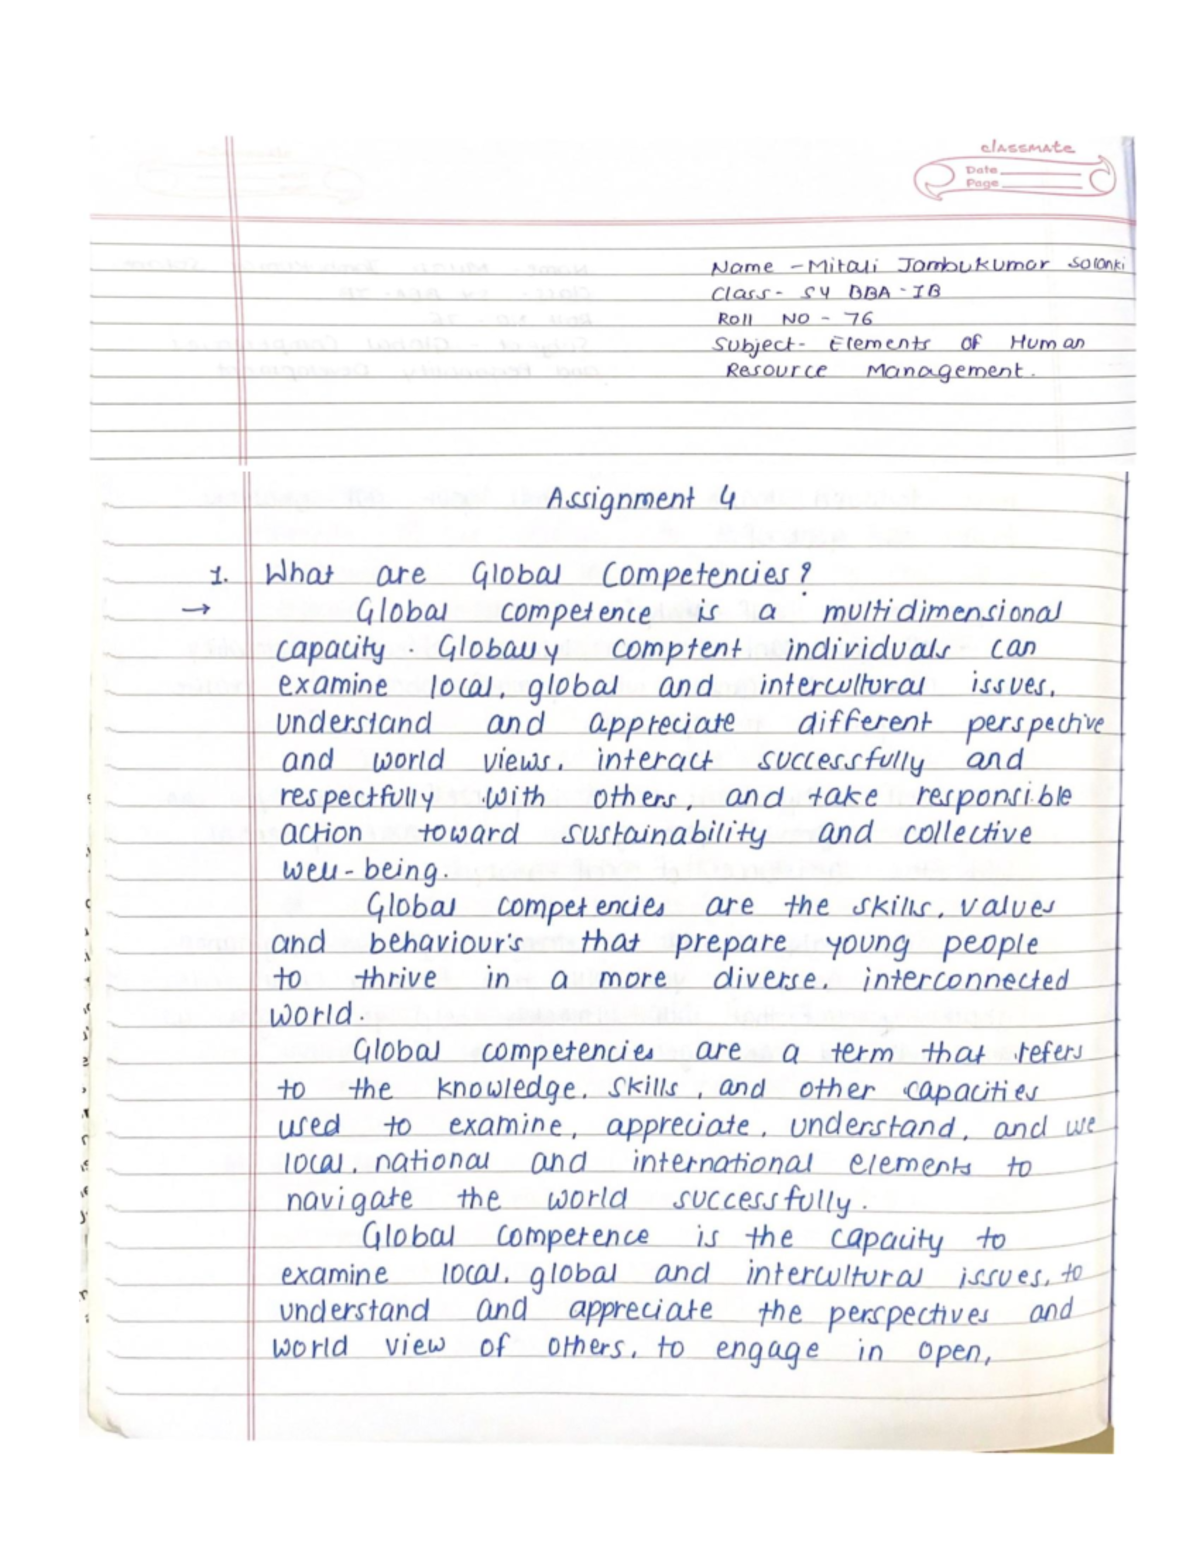 classmate
Date
Page
Name - Mitali Jambukumar Solanki
Class - SY BBA - IB
Roll No - 76
Subject - Elements of Human
Resource Management.
Assignment 4
1. What are Global Competencies?
→ Global competence is a multidimensional
capacity. Globally comptent individuals can
examine local, global and intercultural issues,
understand and appreciate different perspective
and world views, interact successfully and
respectfully with others, and take responsible
action toward sustainability and collective
well-being.
Global competencies are the skills, values
and behaviour's that prepare young people
to thrive in a more diverse, interconnected
world.
Global competencies are a term that refers
to the knowledge, skills, and other capacities
used to examine, appreciate, understand, and we
local, national and international elements to
navigate the world successfully.
Global competence is the capacity to
examine local, global and intercultural issues, to
understand and appreciate the perspectives and
world view of others, to engage in open,